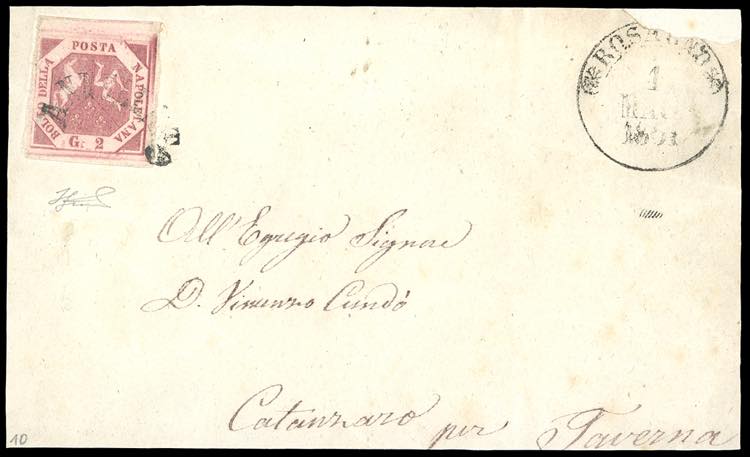 BOLLO DELLA POSTA NAPOLETANA
G. 2
ROSARNO
1
MAG
1861
All'Egregio Signore
D. Vincenzo Cundò
Catanzaro per Taverna
10